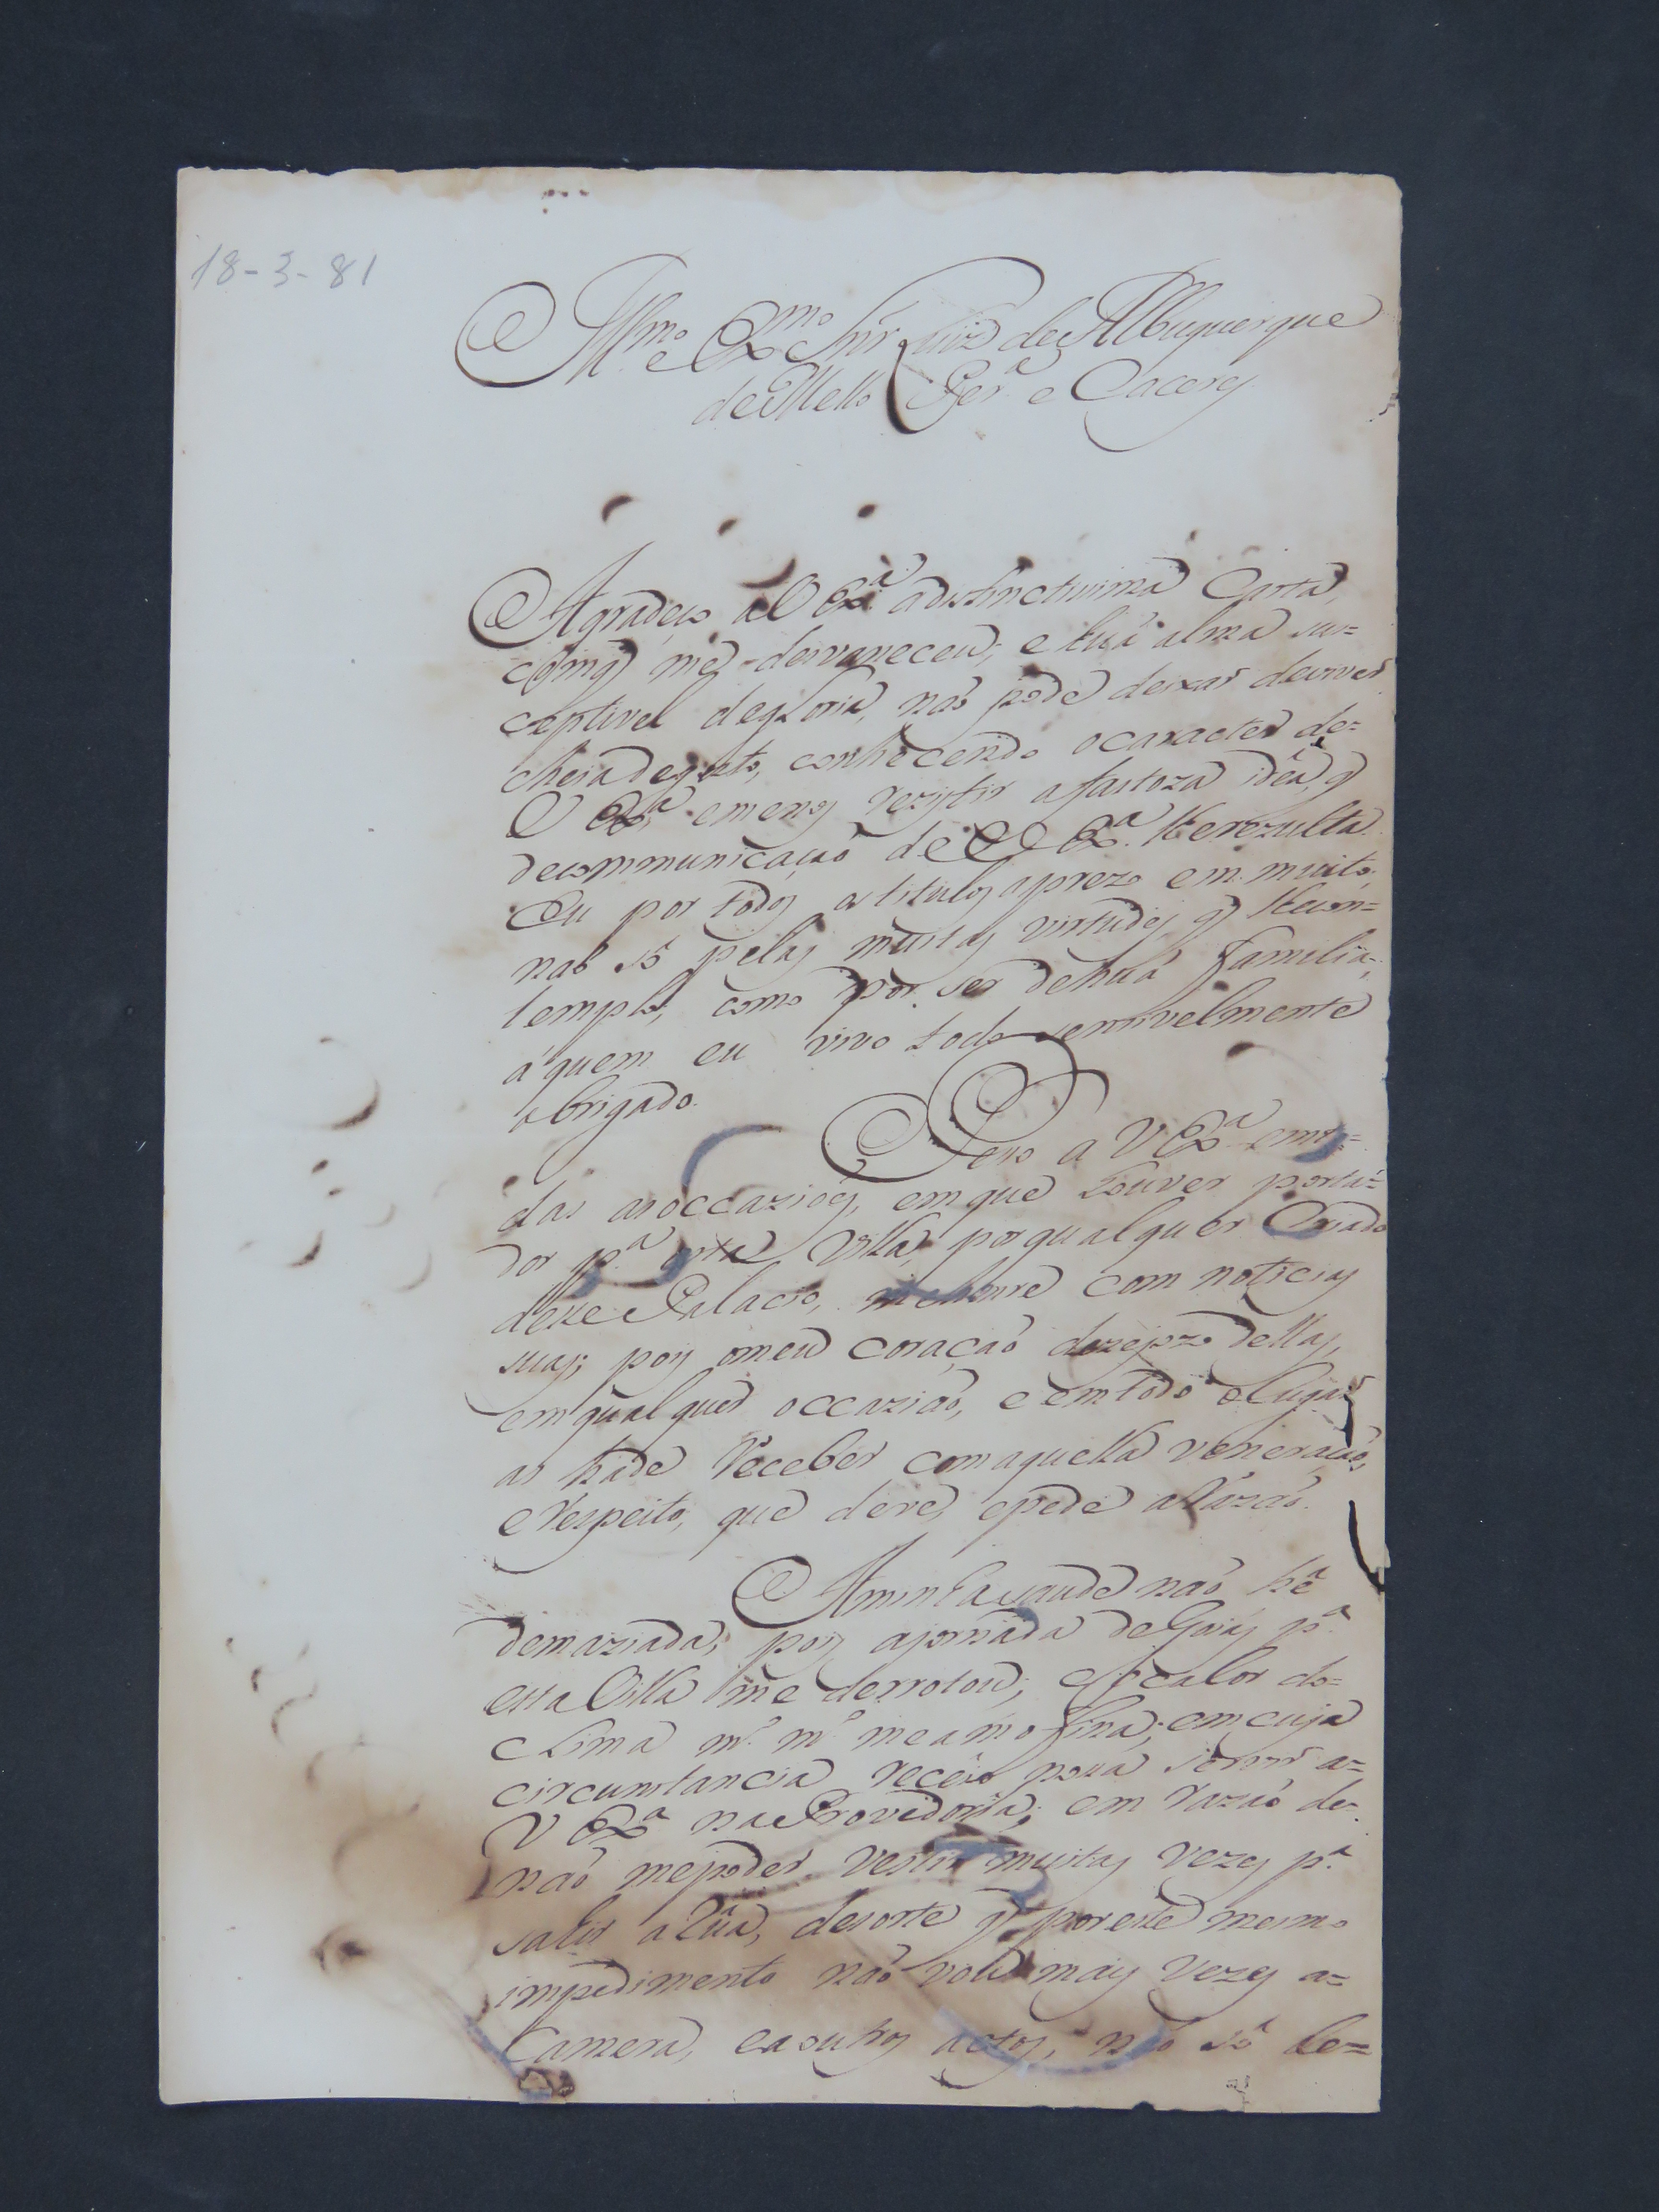 18-3-81
Illmo. e Exmo Snr Luiz de Albuquerque
de Mello Per.ª e Caceres
Agradeço a V Ex.ª a distinctissima Carta,
comq me desvaneceu; e huã alma sus=
ceptivel degloria, naõ póde deixar deviver
cheia degosto, conhecendo ocaracter de=
V Ex.ª, emenos rezistir afastoza idéa, q
decommunicaçaõ de V Ex.ª lherezulta.
Eu por todos ostitulos aprezo em muito,
naõ só pelas muitas virtudes, q lhecon=
templo, como por ser dehuã Familia,
áquem eu vivo todo sensivelmente
obrigado.
Peço a V Ex.ª emto=
das asoccaziões, emque houver porta=
dor p.ª esta Villa, porqualquer Criado
desse Palacio, mehonre com noticias
suas; pois omeu coraçaõ dezejozo dellas,
emqualquer occaziaõ, eemtodo o Lugar
as hade receber comaquella veneraçaõ,
erespeito, que deve, epede aRazaõ.
Aminha saude naõ hé
demaziada, pois ajornada deGoiás p.ª
esta Villa me derrotou; e o calor do=
clima m.to m.to meamofina; emcuja
circunstancia receio possa servir a=
V Ex.ª na Provedoria, em razaõ de=
naõ mepoder vestir muitas vezes p.ª
sahir aRua, desorte q poreste mesmo
impedimento naõ vou mais vezes a=
Camera, eaoutros actos; naõ só be=